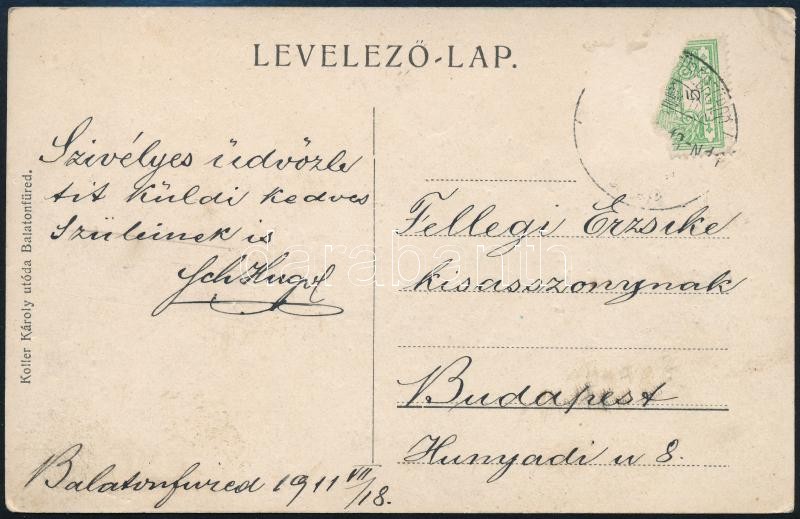 LEVELEZŐ-LAP.
Szivélyes üdvözle
tit küldi kedves
Szüleinek is
Balatonfüred 1911 VII/18.
Fellegi Erzsike
kisasszonynak
Budapest
Hunyadi u 8.
Koller Károly utóda Balatonfüred.
darabanth